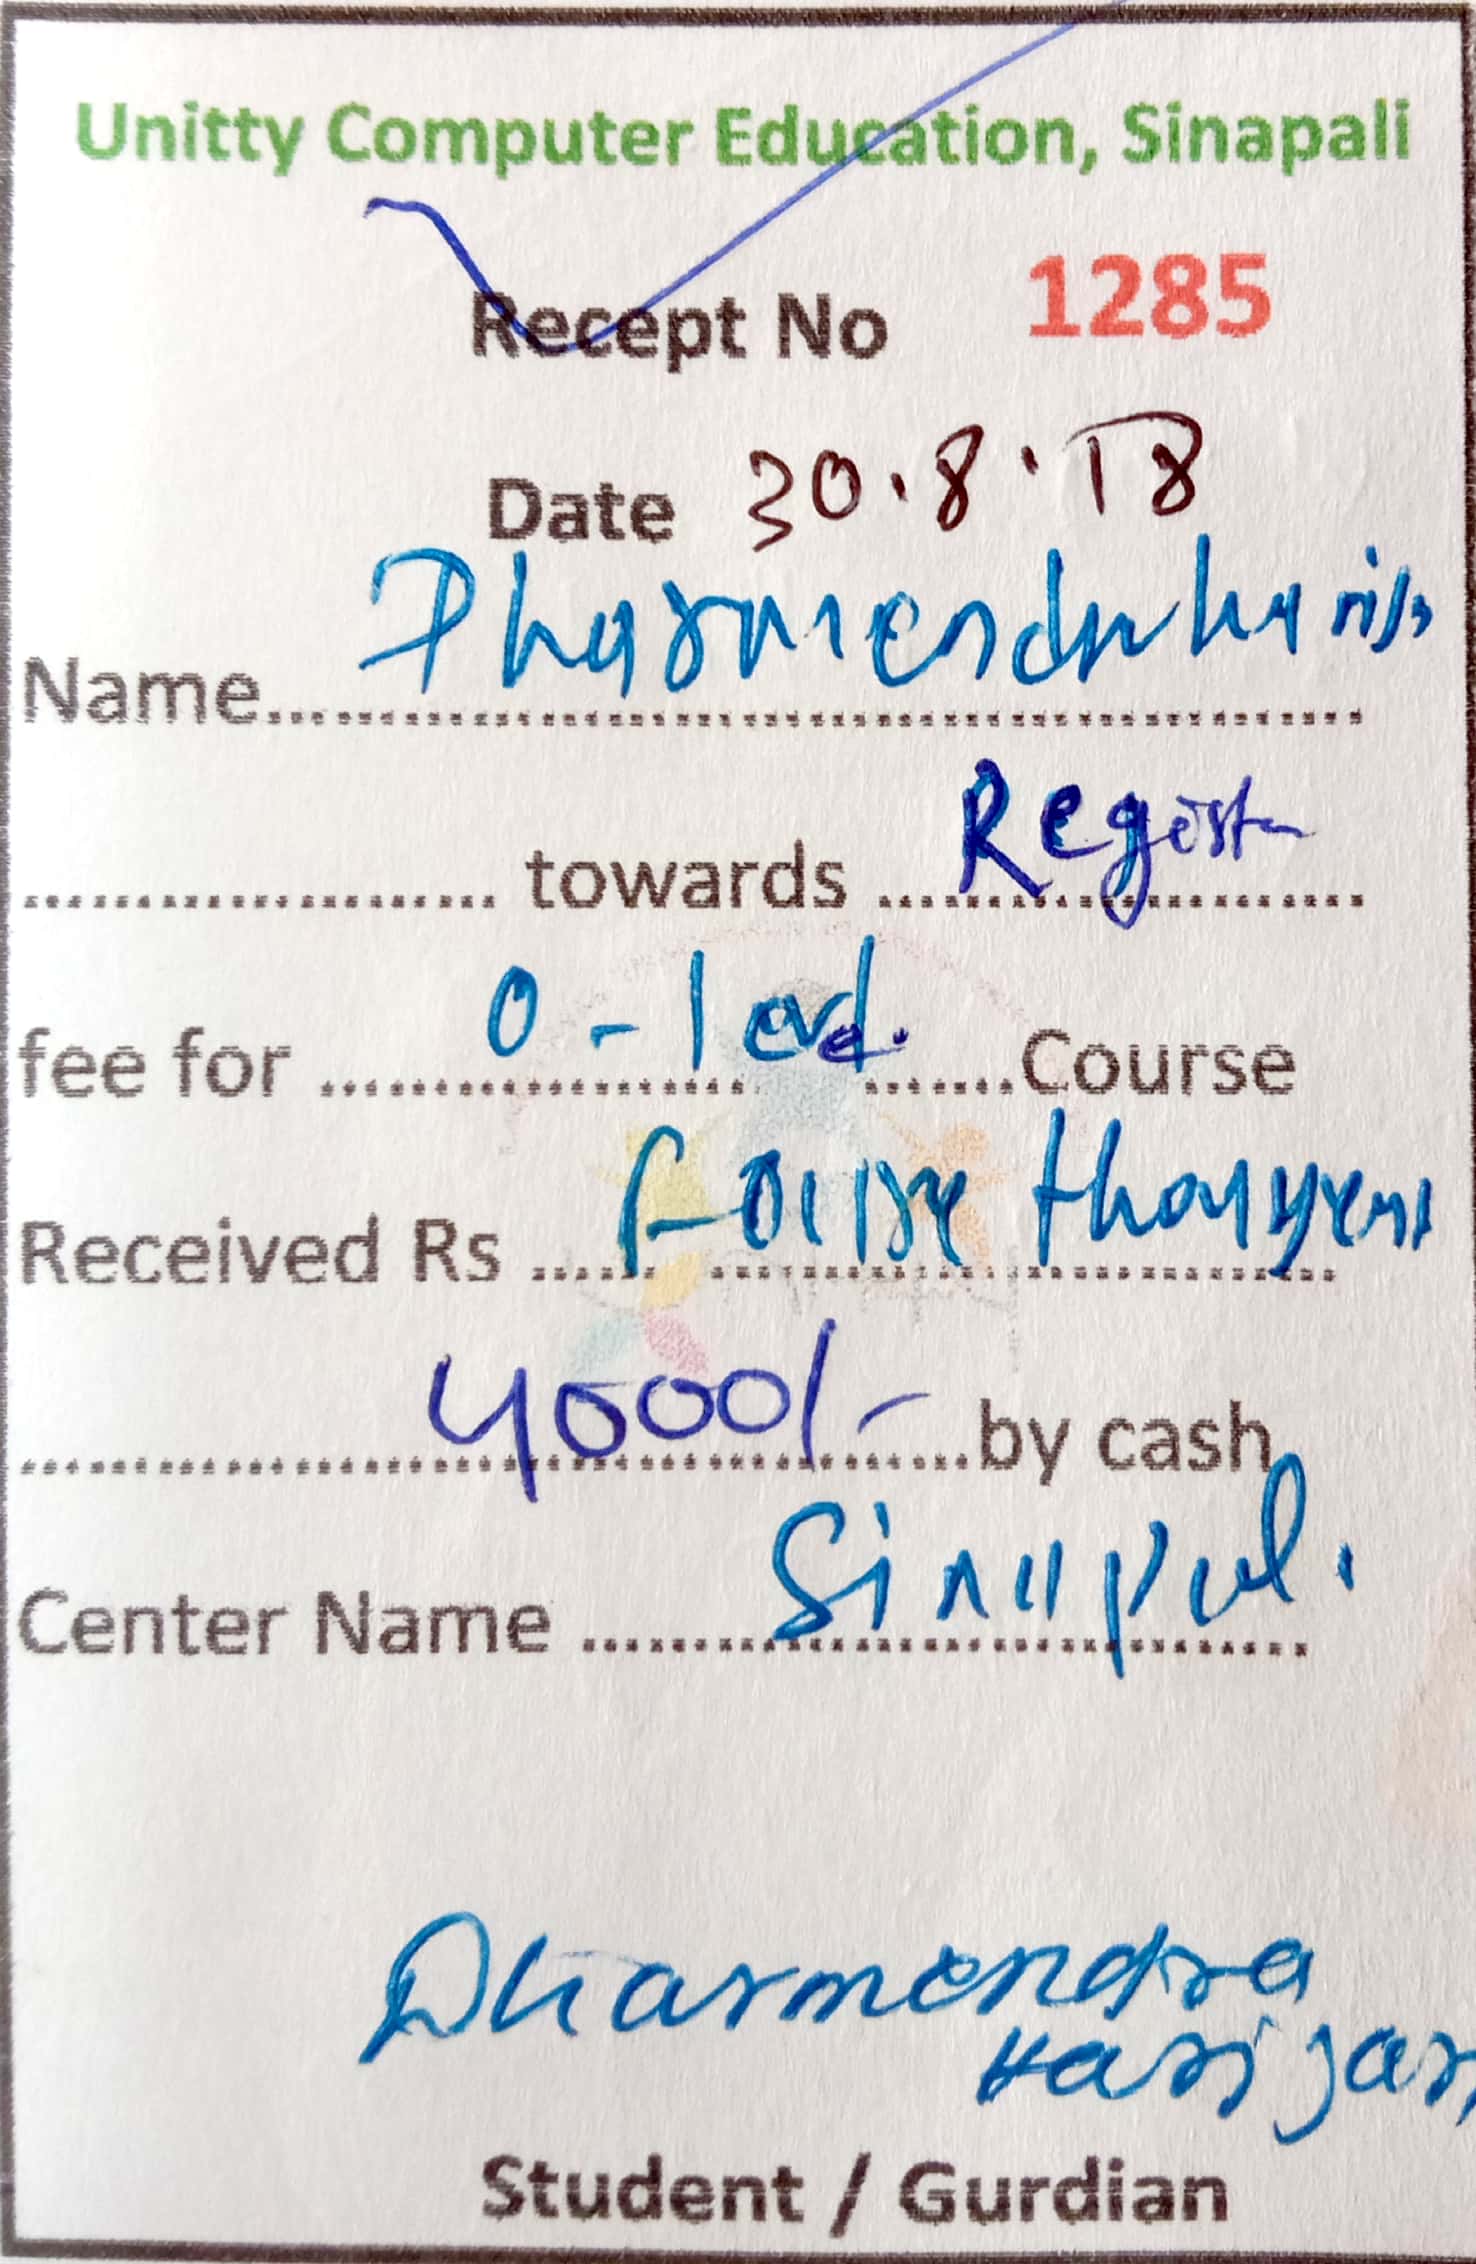 Unitty Computer Education, Sinapali
Recept No 1285
Date 30.8.18
Name.......... Dharmendra
.......... towards .......... Regist
fee for .......... O-level. .......Course
Received Rs .......... Four thousand
.......... 4000/- ..........by cash
Center Name .......... Sinapali
Dharmendra
Harijan
Student / Gurdian